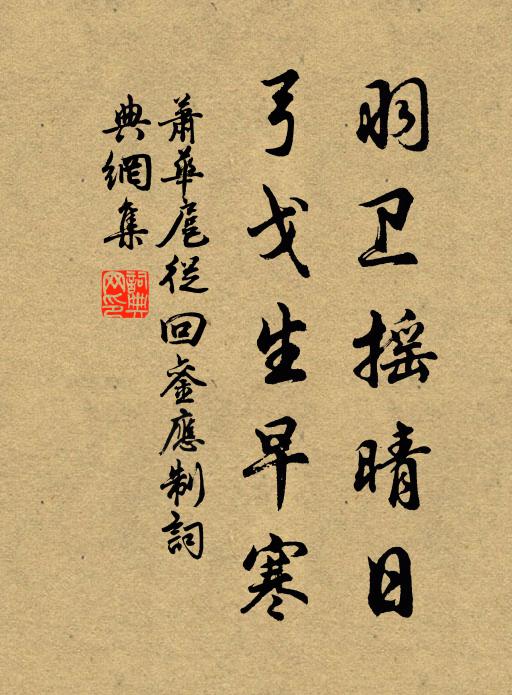 羽卫摇晴日
弓戈生早寒
萧華扈從回銮應制詞
典網集
詞典
网印